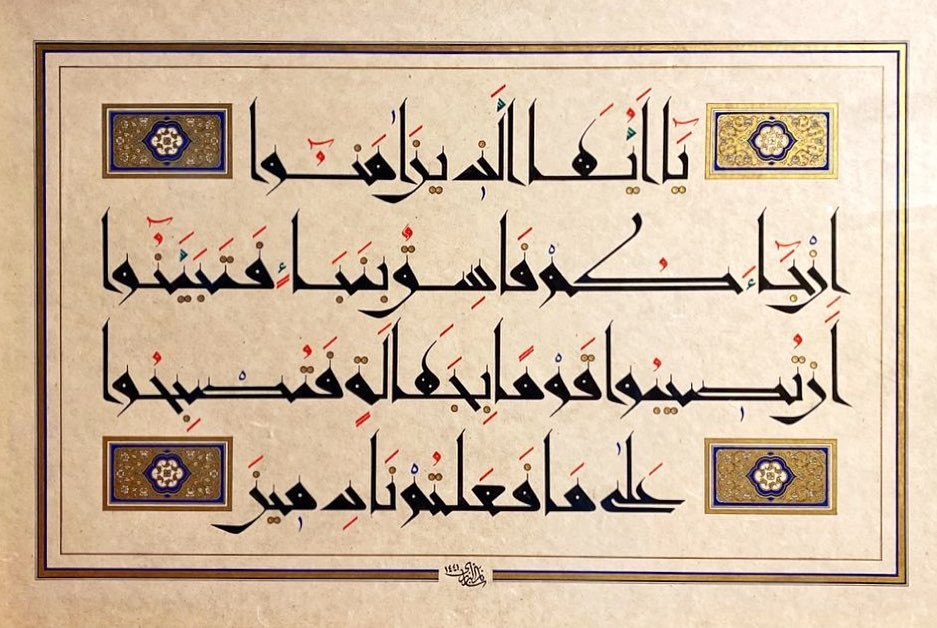 يَا أَيُّهَا الَّذِينَ آمَنُوا
إِنْ جَاءَكُمْ فَاسِقٌ بِنَبَإٍ فَتَبَيَّنُوا
أَنْ تُصِيبُوا قَوْمًا بِجَهَالَةٍ فَتُصْبِحُوا
عَلَىٰ مَا فَعَلْتُمْ نَادِمِينَ
١٤٤١